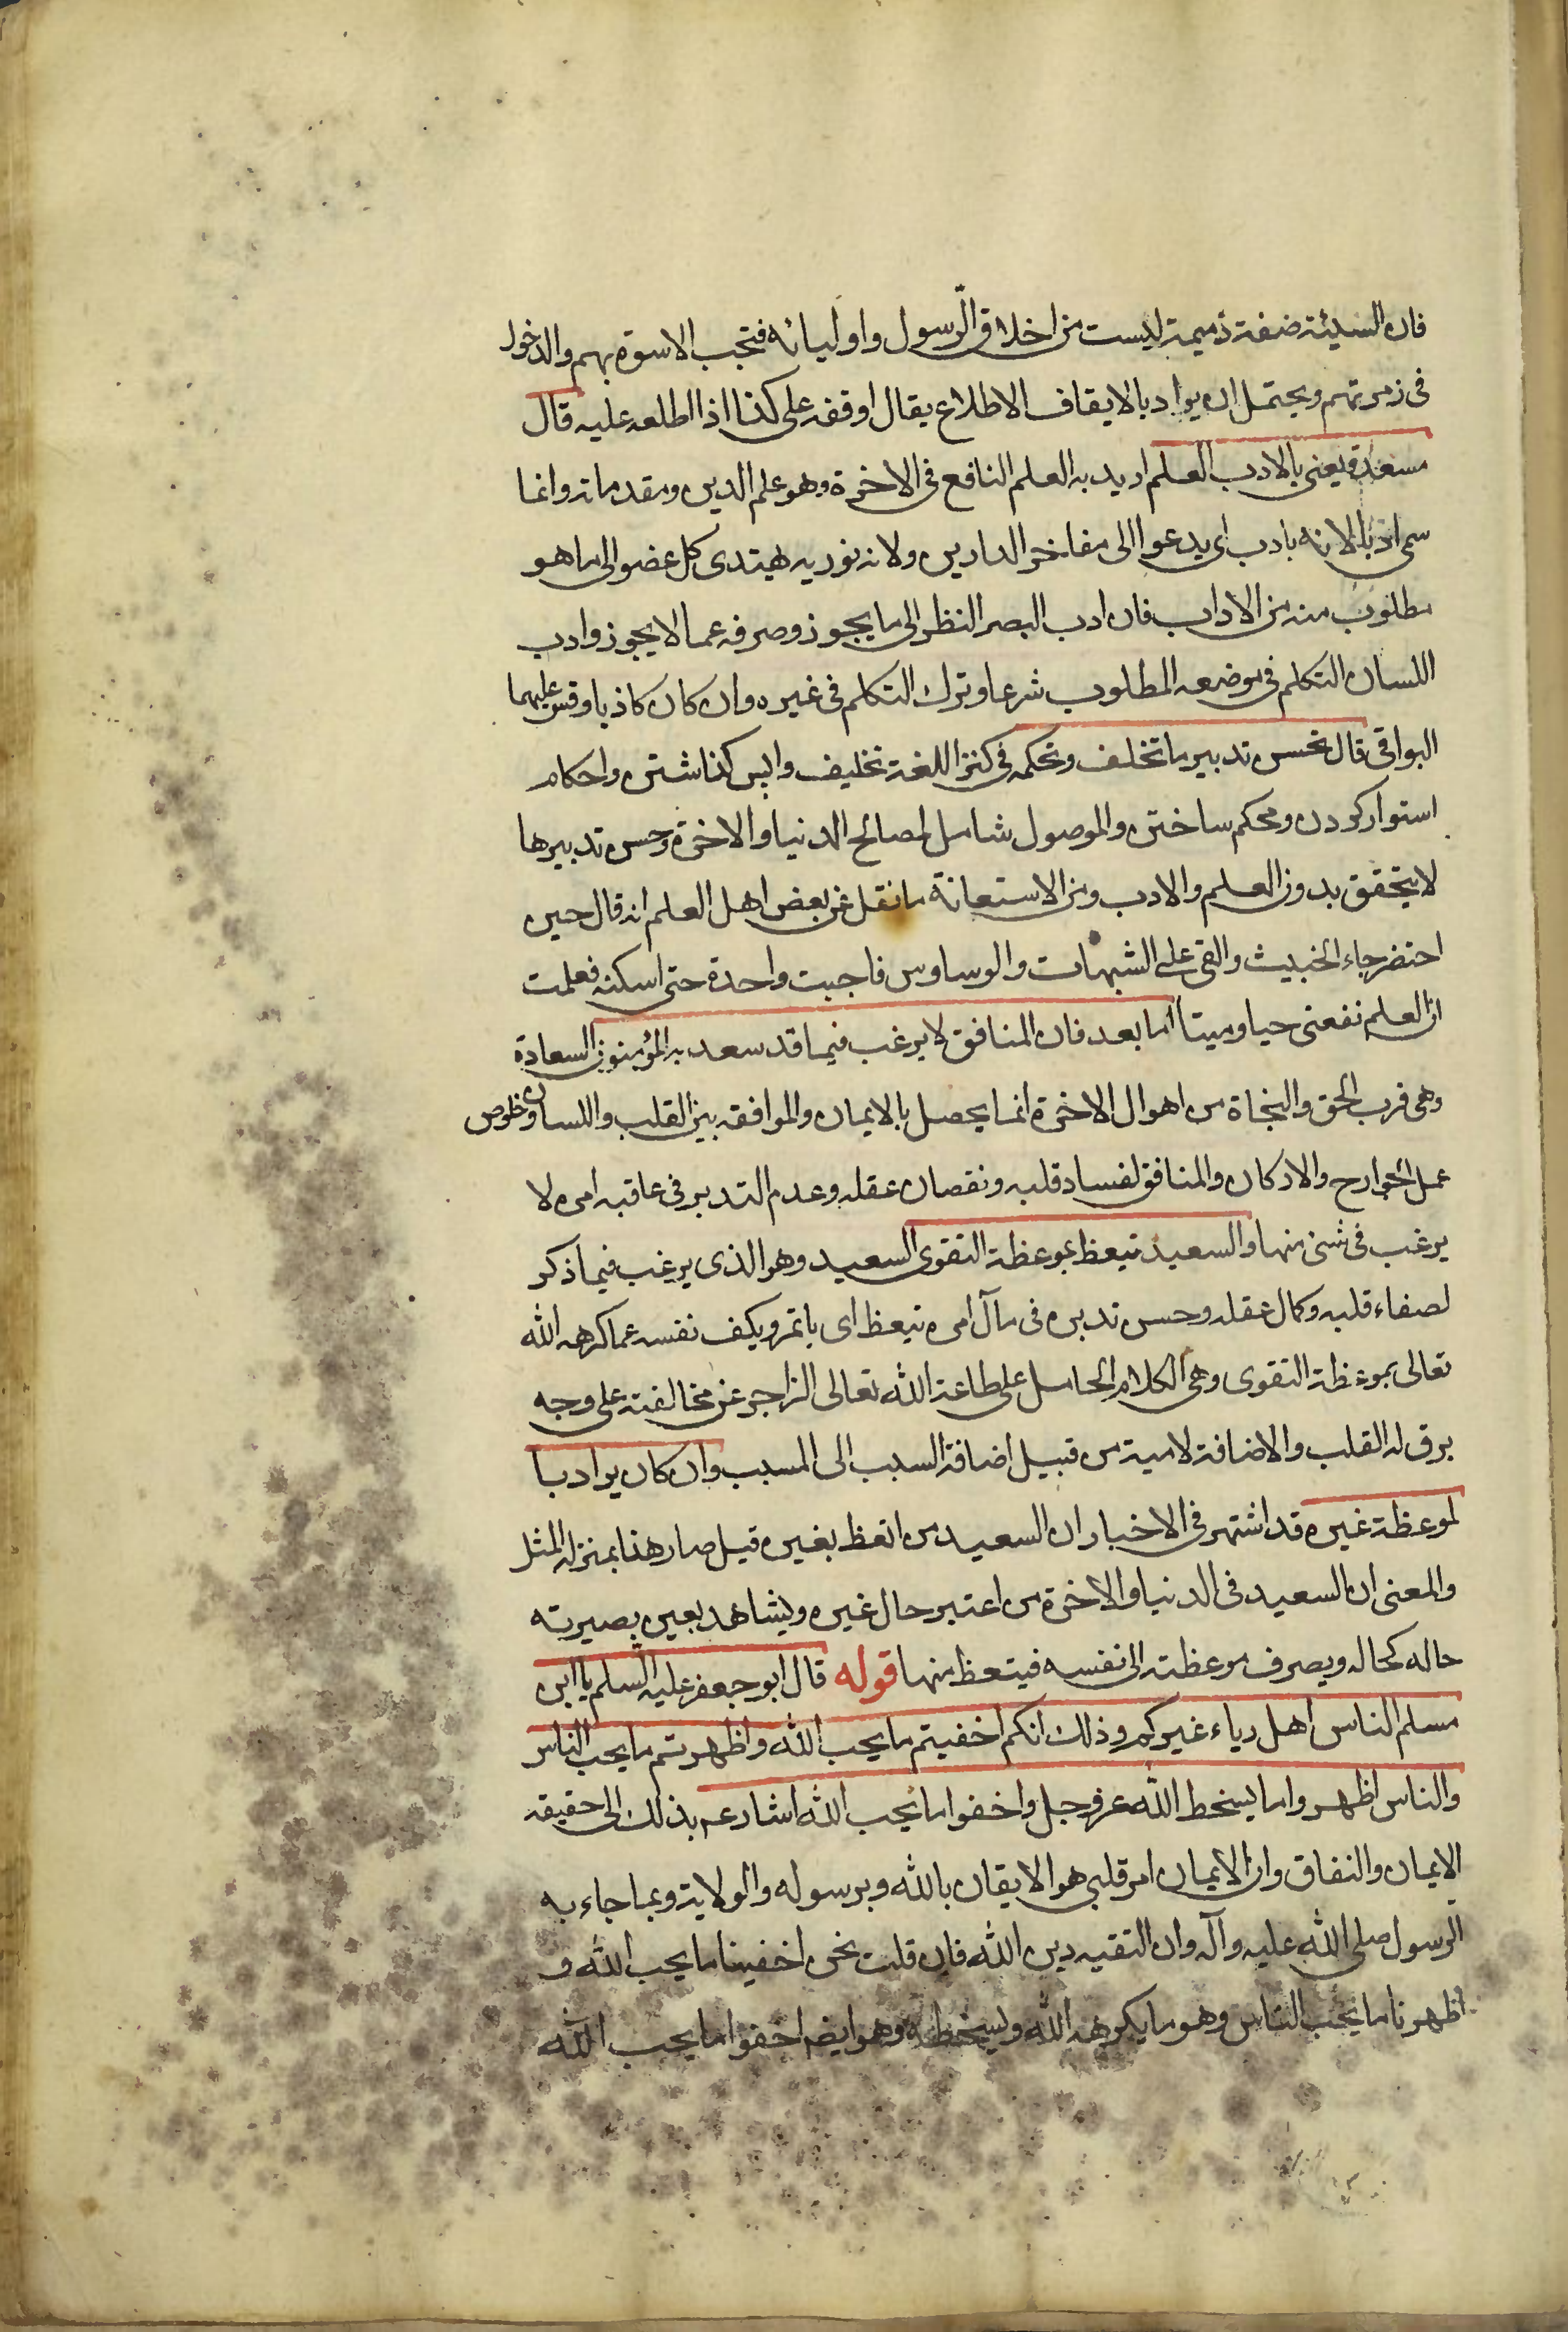 فان السيئة صفة ذميمة ليست من اخلاق الرسول واوليائه فتجب الاسوة بهم والدخول
فى زمرتهم ويحتمل ان يراد بالايقاف الاطلاع يقال اوقفه على كذا اذا اطلعه عليه قال
مسعدة يعنى بالادب العلم اريد به العلم النافع فى الاخرة وهو علم الدين ومقدماته وانما
سمى ادبا لانه يادب اى يدعوا الى مفاخر الدارين ولانه نور به يهتدى كل عضو الى ما هو
مطلوب منه من الاداب فان ادب البصر النظر الى ما يجوز وصرفه عما لا يجوز وادب
اللسان التكلم فى موضعه المطلوب شرعا وترك التكلم فى غيره وان كان كاذبا وقس عليهما
البواقى قال تحسن تدبير ما تخلف وتحكمه فى كنز اللغة تخليف واپس كذاشتن واحكام
استوار كردن ومحكم ساختن والموصول شامل لمصالح الدنيا والاخرة وحسن تدبيرها
لا يتحقق بدون العلم والادب ومن الاستعانة ما نقل عن بعض اهل العلم انه قال حين
احتضر جاء الخبيث والقى على الشبهات والوساوس فاجبت واحدة حتى اسكته فعلمت
ان العلم نفعنى حيا وميتا اما بعد فان المنافق لا يرغب فيما قد سعد به المؤمنون السعادة
وهى قرب الحق والنجاة من اهوال الاخرة انما يحصل بالايمان والموافقه بين القلب واللسان وخلوص
عمل الجوارح والاركان والمنافق لفساد قلبه ونقصان عقله وعدم التدبر فى عاقبه امره لا
يرغب فى شئ منها والسعيد تيعظ بموعظة التقوى السعيد وهو الذى يرغب فيما ذكر
لصفاء قلبه وكمال عقله وحسن تدبره فى مآل امره تيعظ اى ياتمر ويكف نفسه عما كرهه الله
تعالى بموعظة التقوى وهى الكلام الحامل على طاعة الله تعالى الزاجر عن مخالفته على وجه
يرق له القلب والاضافة لامية من قبيل اضافة السبب الى المسبب وان كان يراد با
لموعظة غيره قد اشتهر فى الاخبار ان السعيد من اتعظ بغيره قيل صار هذا بمنزلة المثل
والمعنى ان السعيد فى الدنيا والاخرة من اعتبر حال غيره ويشاهد بعين بصيرته
حاله كحاله ويصرف موعظته الى نفسه فيتعظ منها قوله قال ابو جعفر عليه السلم يا ابن
مسلم الناس اهل رياء غيركم وذلك انكم اخفيتم ما يحب الله واظهرتم ما يحب الناس
والناس اظهروا ما يسخط الله عز وجل واخفوا ما يحب الله اشار عم بذلك الى حقيقه
الايمان والنفاق وان الايمان امر قلبى هو الايقان بالله وبرسوله والولاية وبما جاء به
الرسول صلى الله عليه وآله وان التقيه دين الله فان قلت نحن اخفينا ما يحب الله و
اظهرنا ما يحب الناس وهو ما يكرهه الله ويسخطه وهو ايضا اخفوا ما يحب الله